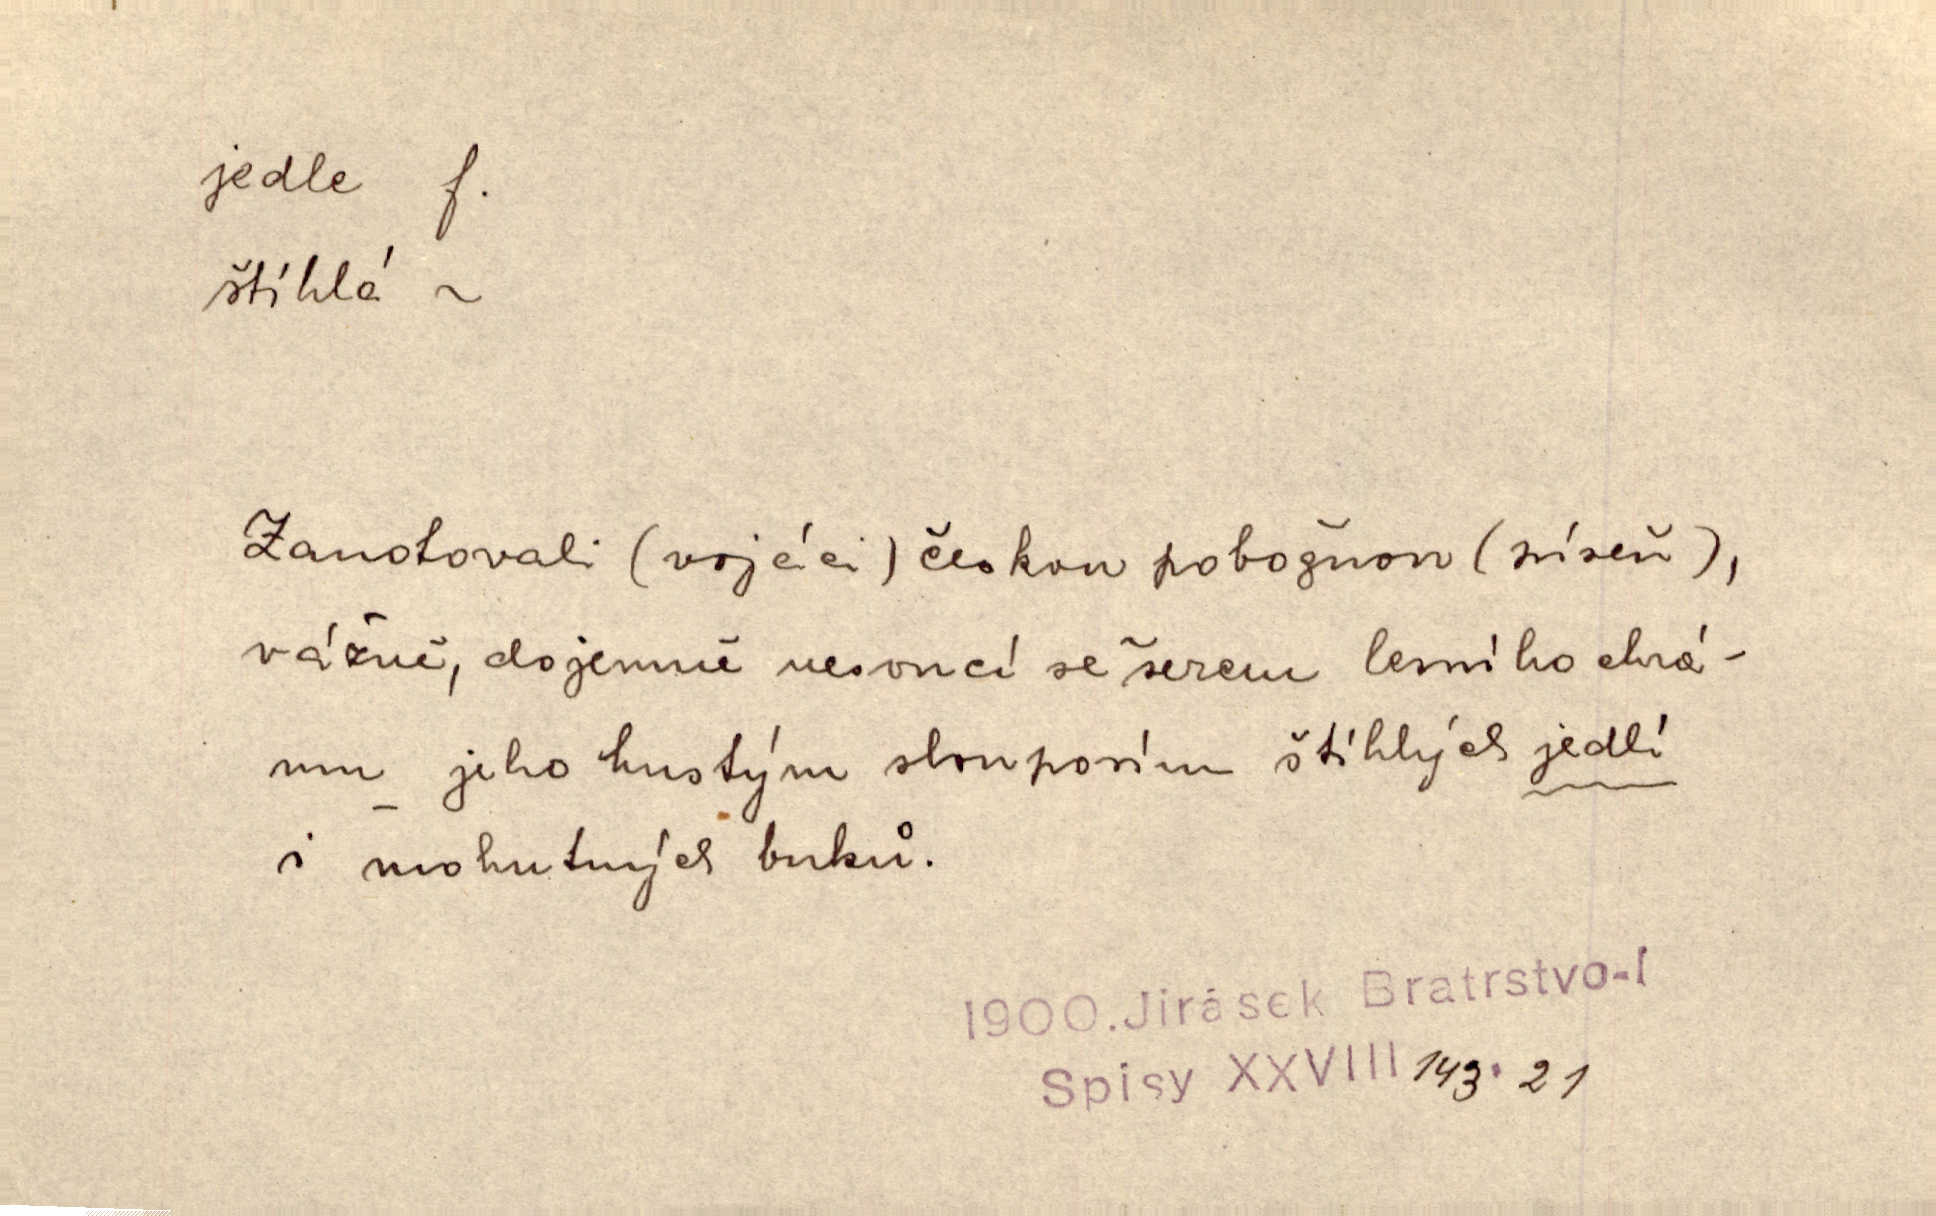 jedle f.
štíhlá ~
Zanotovali (vojáci) českou pobožnou (píseň),
vážně, dojemně nesoucí se šerem lesního chrá-
mu jeho hustým slouposím štíhlých jedlí
i mohutných buků.
1900. Jirásek Bratrstvo-I
Spisy XXVIII 143. 21